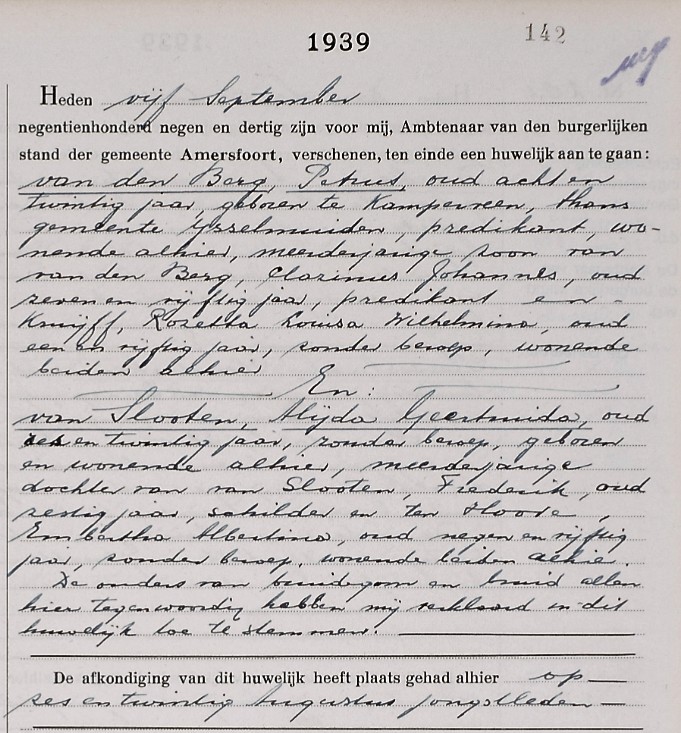 1939
142
Heden vijf September
negentienhonderd negen en dertig zijn voor mij, Ambtenaar van den burgerlijken
stand der gemeente Amersfoort, verschenen, ten einde een huwelijk aan te gaan:
van den Berg, Petrus, oud acht en
twintig jaar, geboren te Kamperveen, thans
gemeente IJsselmuiden, predikant, wo-
nende alhier, meerderjarige zoon van
van den Berg, Clasinus Johannes, oud
zeven en vijftig jaar, predikant en
Knijff, Rosetta Louisa Wilhelmina, oud
een en vijftig jaar, zonder beroep, wonende
beiden alhier
En:
van Slooten, Alijda Geertruida, oud
zes en twintig jaar, zonder beroep, geboren
en wonende alhier, meerderjarige
dochter van van Slooten, Frederik, oud
zestig jaar, schilder en ten Hoove,
Embertha Albertina, oud negen en vijftig
jaar, zonder beroep, wonende beiden alhier.
De ouders van bruidegom en bruid allen
hier tegenwoordig hebben mij verklaard in dit
huwelijk toe te stemmen.
De afkondiging van dit huwelijk heeft plaats gehad alhier op
zes en twintig Augustus jongstleden